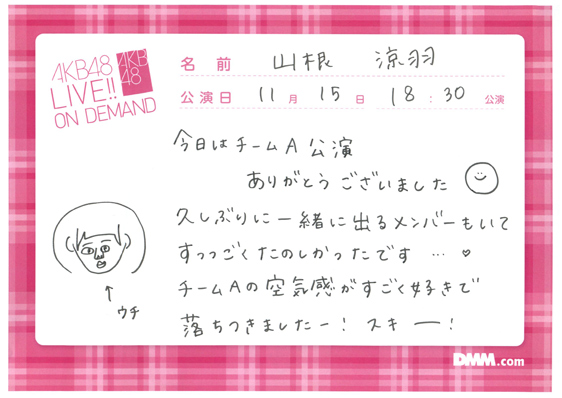 AKB48
LIVE!!
ON DEMAND
AKB
48
名前 山根 涼羽
公演日 11月 15日 18:30 公演
今日はチームA公演
ありがとうございました
久しぶりに一緒に出るメンバーもいて
すっっごくたのしかったです…♥
チームAの空気感がすごく好きで
落ちつきましたー! スキー!
↑
ウチ
DMM.com